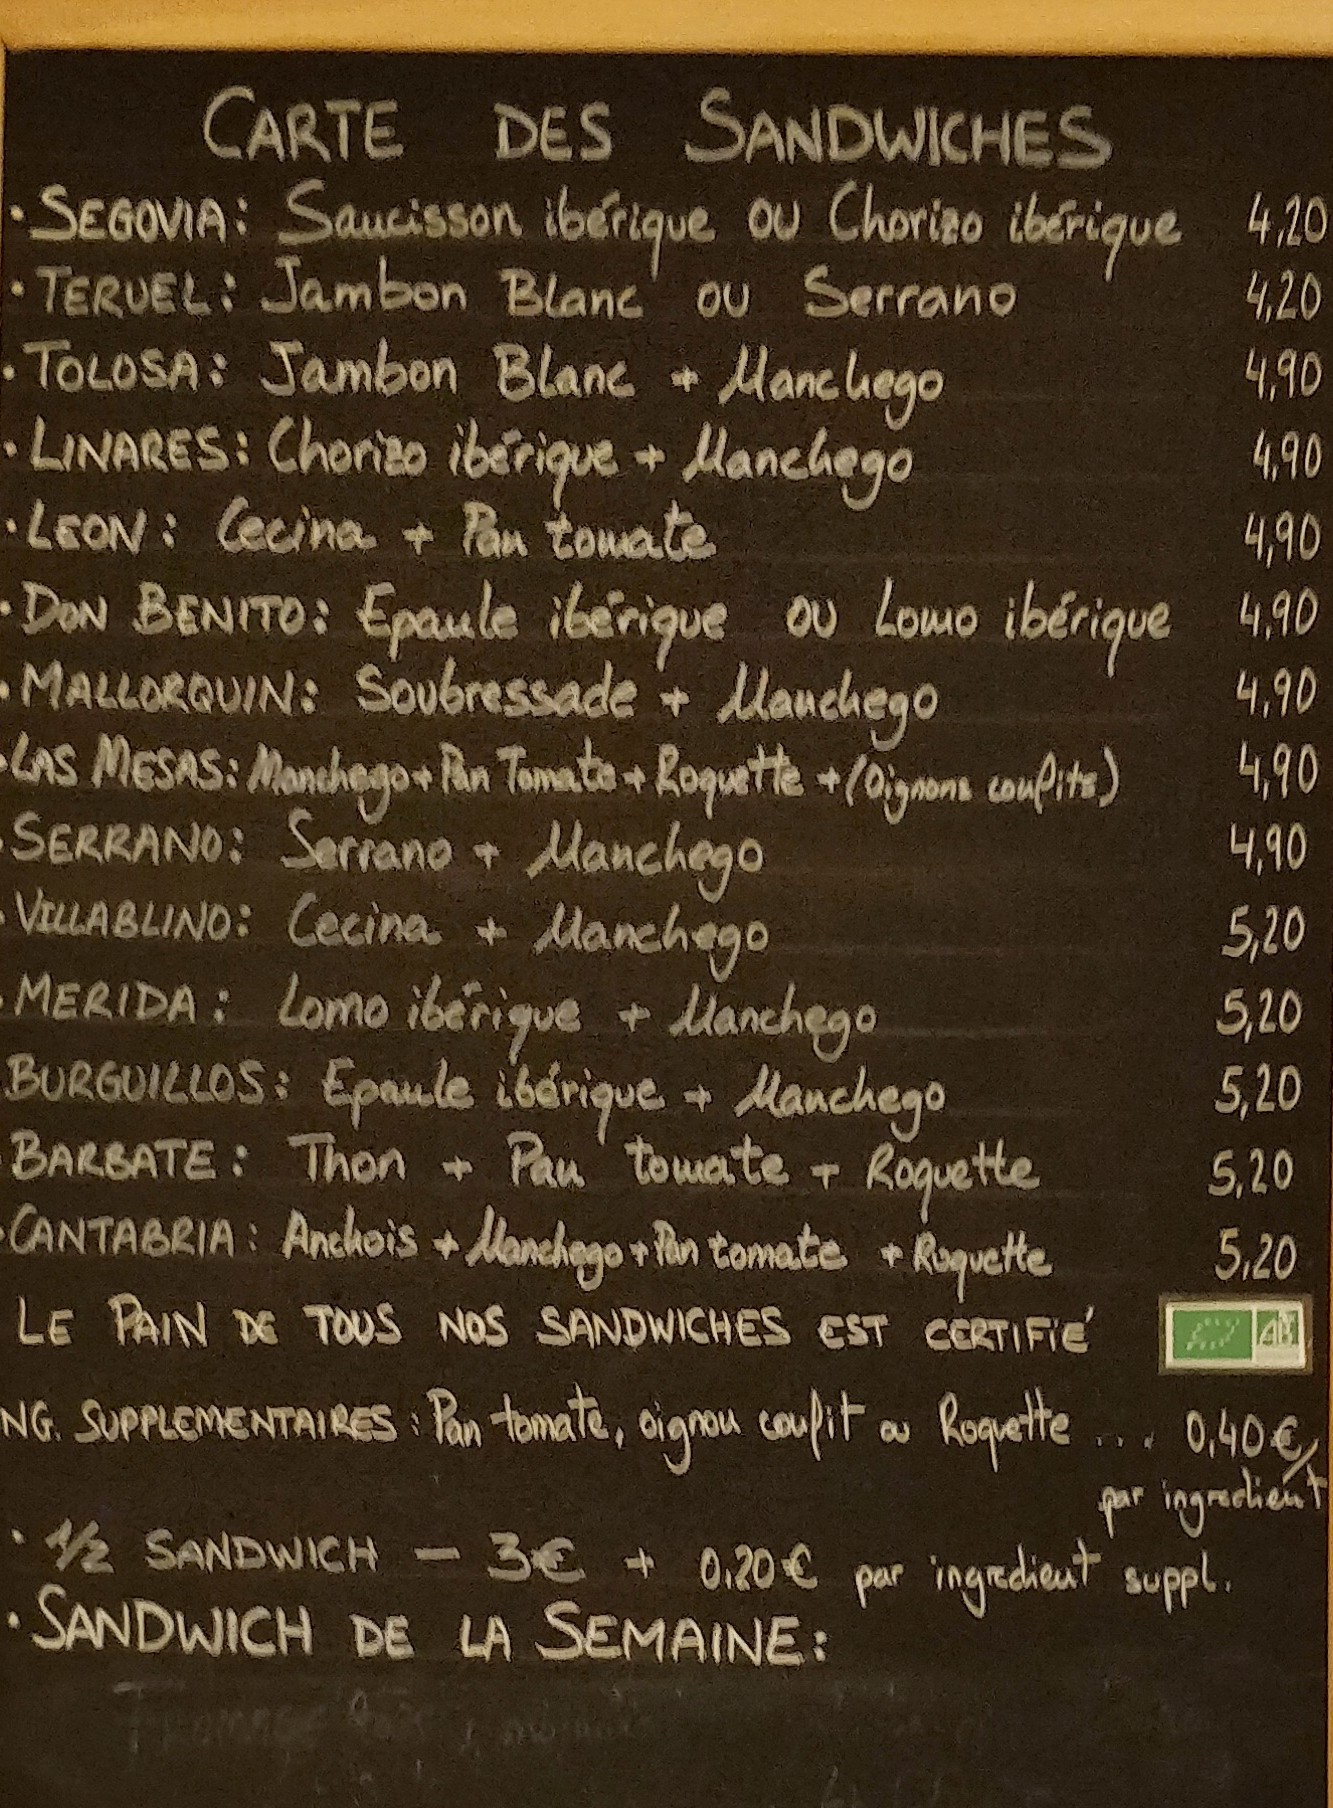 CARTE DES SANDWICHES
· SEGOVIA: Saucisson ibérique OU Chorizo ibérique 4,20
· TERUEL: Jambon Blanc OU Serrano 4,20
· TOLOSA: Jambon Blanc + Manchego 4,90
· LINARES: Chorizo ibérique + Manchego 4,90
· LEON: Cecina + Pan tomate 4,90
· DON BENITO: Epaule ibérique OU Lomo ibérique 4,90
· MALLORQUIN: Soubressade + Manchego 4,90
· LAS MESAS: Manchego + Pan Tomate + Roquette + (Oignons confits) 4,90
· SERRANO: Serrano + Manchego 4,90
· VILLABLINO: Cecina + Manchego 5,20
· MERIDA: Lomo ibérique + Manchego 5,20
BURGUILLOS: Epaule ibérique + Manchego 5,20
· BARBATE: Thon + Pan tomate + Roquette 5,20
· CANTABRIA: Anchois + Manchego + Pan tomate + Roquette 5,20
LE PAIN DE TOUS NOS SANDWICHES EST CERTIFIÉ AB
NG. SUPPLEMENTAIRES: Pan tomate, oignon confit ou Roquette ... 0,40€/
par ingredient
· 1/2 SANDWICH - 3€ + 0,20€ par ingredient suppl.
· SANDWICH DE LA SEMAINE: